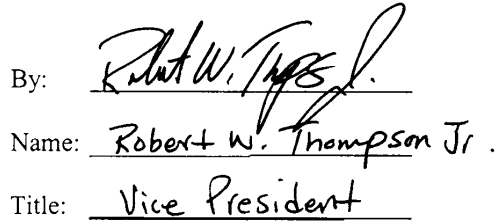 By: Robert W. Thompson Jr.
Name: Robert W. Thompson Jr.
Title: Vice President